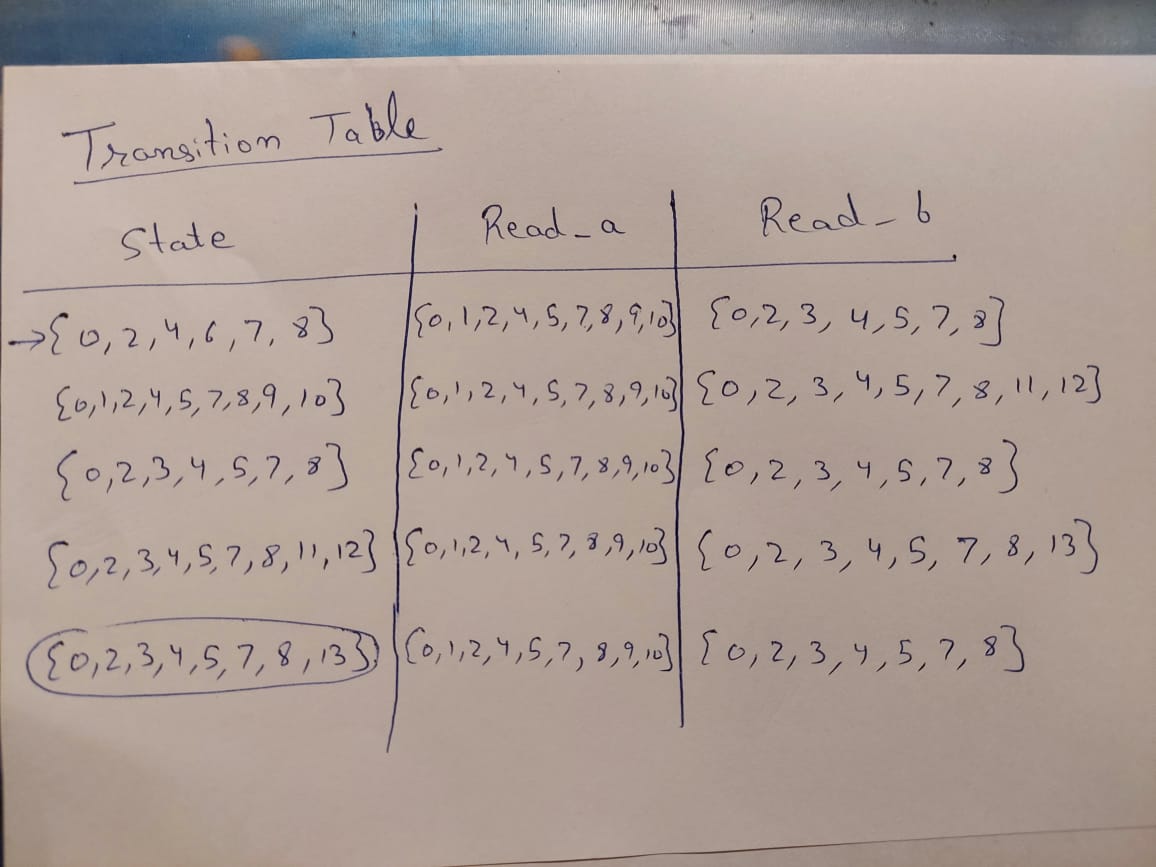 Transition Table
State Read_a Read_b
→{0,2,4,6,7,8} {0,1,2,4,5,7,8,9,10} {0,2,3,4,5,7,8}
{0,1,2,4,5,7,8,9,10} {0,1,2,4,5,7,8,9,10} {0,2,3,4,5,7,8,11,12}
{0,2,3,4,5,7,8} {0,1,2,4,5,7,8,9,10} {0,2,3,4,5,7,8}
{0,2,3,4,5,7,8,11,12} {0,1,2,4,5,7,8,9,10} {0,2,3,4,5,7,8,13}
{0,2,3,4,5,7,8,13} {0,1,2,4,5,7,8,9,10} {0,2,3,4,5,7,8}